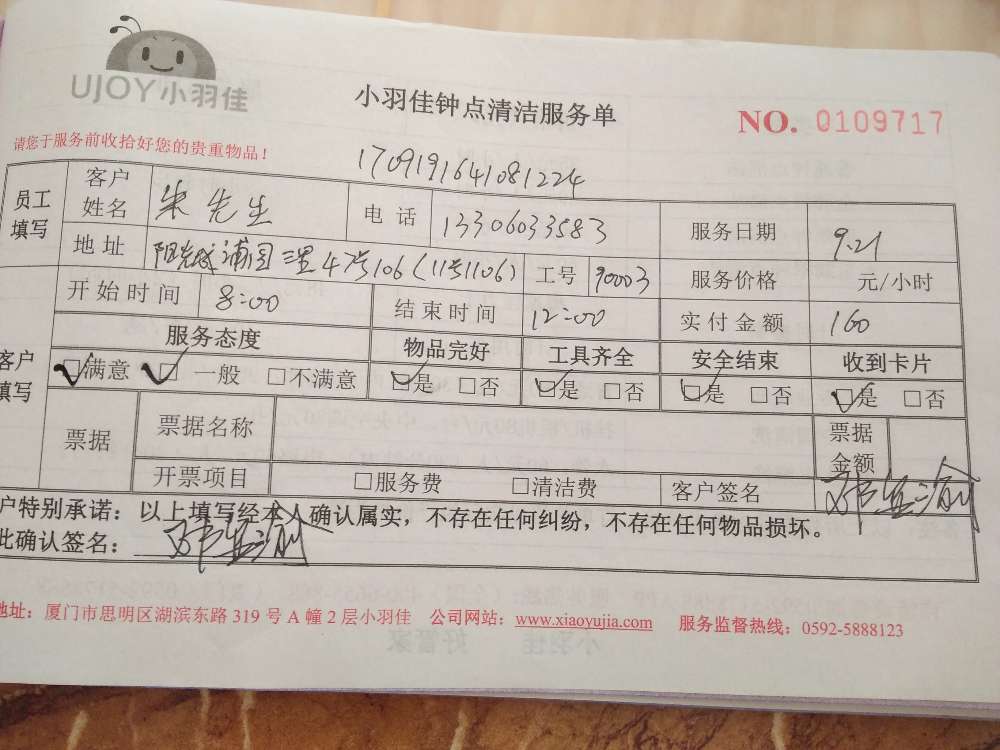 UJOY小羽佳
小羽佳钟点清洁服务单
NO. 0109717
请您于服务前收拾好您的贵重物品！
1709191641081224
员工填写 客户姓名 朱先生 电话 13306033583 服务日期 9.21
地址 阳光城浦园三里47号106(11号1106) 工号 90003 服务价格 元/小时
开始时间 8:00 结束时间 12:00 实付金额 160
客户填写 服务态度 物品完好 工具齐全 安全结束 收到卡片
☑满意 ☑一般 □不满意 ☑是 □否 ☑是 □否 ☑是 □否 ☑是 □否
票据 票据名称 票据金额
开票项目 □服务费 □清洁费 客户签名
户特别承诺：以上填写经本人确认属实，不存在任何纠纷，不存在任何物品损坏。
此确认签名：
地址：厦门市思明区湖滨东路319号A幢2层小羽佳 公司网站：www.xiaoyujia.com 服务监督热线：0592-5888123